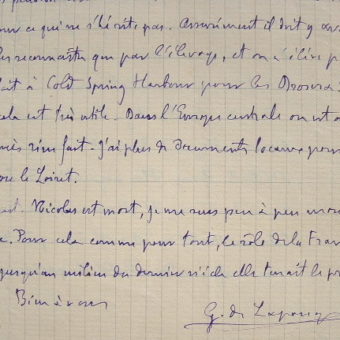 our ce qui ne s'hérite pas. Assurément il doit y av
les reconnaître que par l'élevage, et on n'élève p
fait à Cold Spring Harbour pour les Drosop
cela est très utile. Dans l'Europe centrale on est a
près rien fait. J'ai plus de documents locaux pour
ou le Loiret.
Nicolas est mort, je me suis peu à peu
e. Pour cela comme pour tout, le rôle de la Fran
jusqu'au milieu du dernier siècle elle tenait le pr
Bien à vous
G. de Lapouge